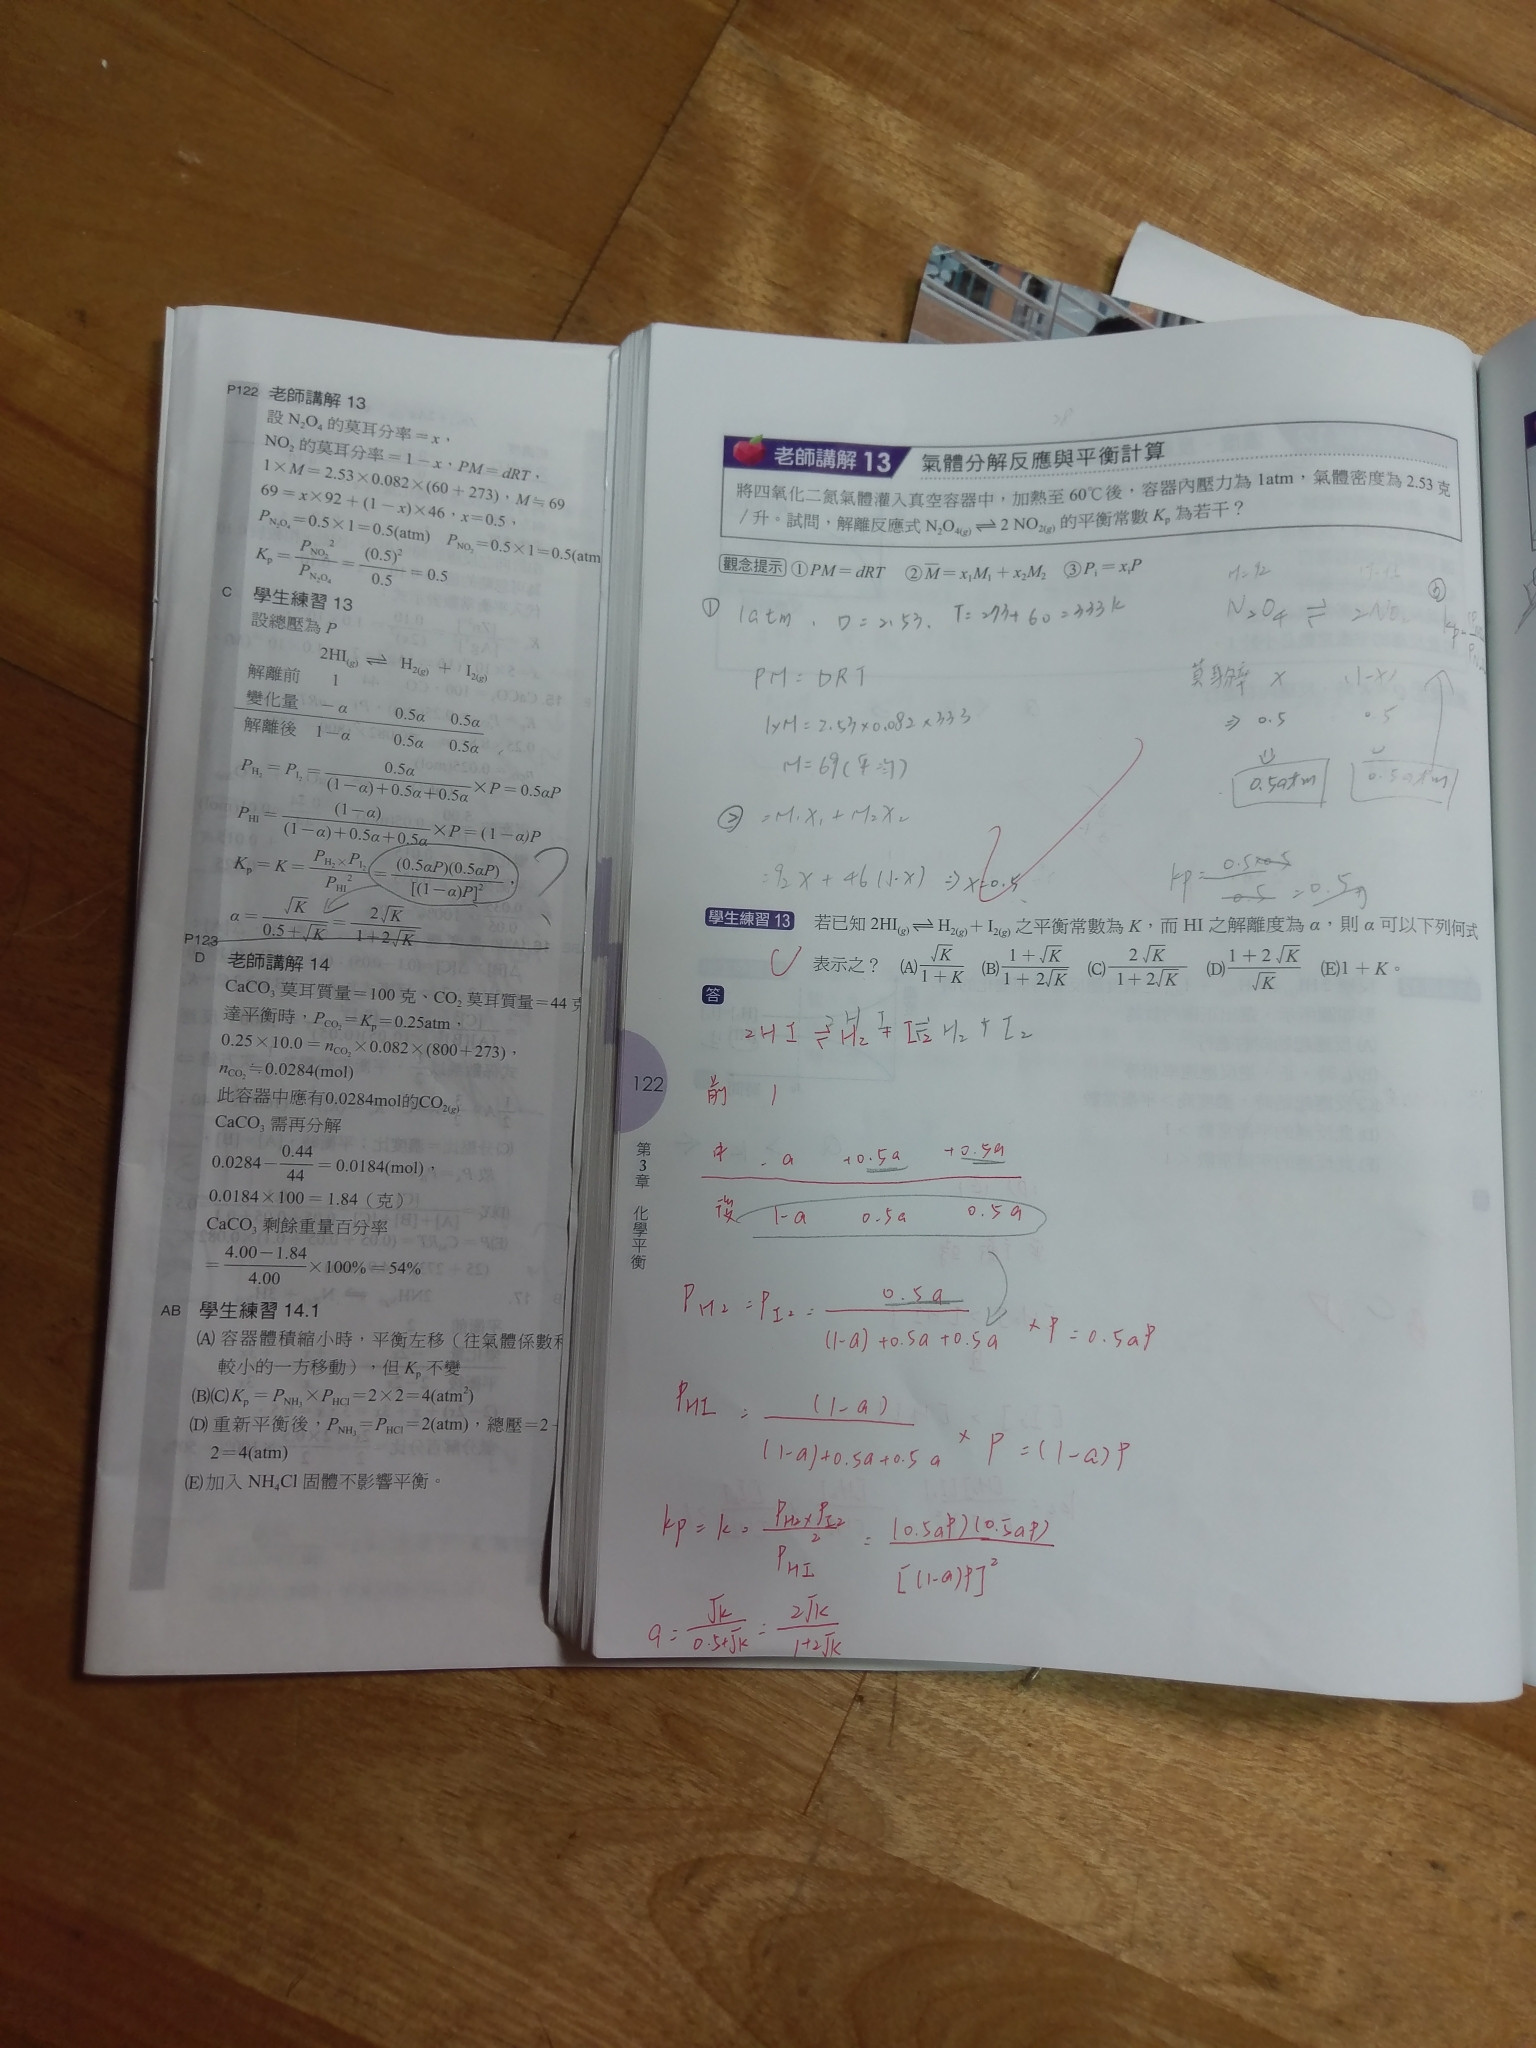 P122 老師講解 13
設 N₂O₄ 的莫耳分率＝x，
NO₂ 的莫耳分率＝1－x，PM＝dRT，
1×M＝2.53×0.082×(60＋273)，M≒69
69＝x×92＋(1－x)×46，x＝0.5，
P_N₂O₄＝0.5×1＝0.5(atm) P_NO₂＝0.5×1＝0.5(atm
K_p＝P_NO₂²/P_N₂O₄＝(0.5)²/0.5＝0.5
C 學生練習 13
設總壓為 P
2HI(g) ⇌ H₂(g) ＋ I₂(g)
解離前 1
變化量 －α 0.5α 0.5α
解離後 1－α 0.5α 0.5α，
P_H₂＝P_I₂＝0.5α/((1－α)＋0.5α＋0.5α)×P＝0.5αP
P_HI＝(1－α)/((1－α)＋0.5α＋0.5α)×P＝(1－α)P
K_p＝K＝P_H₂×P_I₂/P_HI²＝(0.5αP)(0.5αP)/[(1－α)P]²， ?
α＝√K/(0.5＋√K)＝2√K/(1＋2√K)
P123
D 老師講解 14
CaCO₃ 莫耳質量＝100 克、CO₂ 莫耳質量＝44 克
達平衡時，P_CO₂＝K_p＝0.25atm，
0.25×10.0＝n_CO₂×0.082×(800＋273)，
n_CO₂≒0.0284(mol)
此容器中應有0.0284mol的CO₂(g)
CaCO₃ 需再分解
0.0284－0.44/44＝0.0184(mol)，
0.0184×100＝1.84（克）
CaCO₃ 剩餘重量百分率
＝(4.00－1.84)/4.00×100%＝54%
AB 學生練習 14.1
(A) 容器體積縮小時，平衡左移（往氣體係數和
較小的一方移動），但 K_p 不變
(B)(C) K_p＝P_NH₃×P_HCl＝2×2＝4(atm²)
(D) 重新平衡後，P_NH₃＝P_HCl＝2(atm)，總壓＝2＋
2＝4(atm)
(E) 加入 NH₄Cl 固體不影響平衡。
老師講解 13 氣體分解反應與平衡計算
將四氧化二氮氣體灌入真空容器中，加熱至 60℃後，容器內壓力為 1atm，氣體密度為 2.53 克
/升。試問，解離反應式 N₂O₄(g) ⇌ 2 NO₂(g) 的平衡常數 K_p 為若干？
觀念提示 ①PM＝dRT ②M̄＝x₁M₁＋x₂M₂ ③P₁＝x₁P
① 1atm , D=2.53. T=273+60=333k
PM=DRT
1×M=2.53×0.082×333
M=69(平均)
② =M₁X₁+M₂X₂
=92X+46(1-X) ⇒X=0.5
M=92
N₂O₄ ⇌ 2NO₂
莫耳分率 X (1-X)
⇒ 0.5 0.5
0.5atm 0.5atm
kp=0.5×0.5/0.5=0.5
學生練習 13 若已知 2HI(g) ⇌ H₂(g)＋I₂(g) 之平衡常數為 K，而 HI 之解離度為 α，則 α 可以下列何式
C 表示之？ (A)√K/(1＋K) (B)(1＋√K)/(1＋2√K) (C)2√K/(1＋2√K) (D)(1＋2√K)/√K (E)1＋K。
答
2HI ⇌ H₂ + I₂ H₂ + I₂
前 1
中 -a +0.5a +0.5a
後 1-a 0.5a 0.5a
P_H₂=P_I₂=0.5a/((1-a)+0.5a+0.5a)×P=0.5aP
P_HI=(1-a)/((1-a)+0.5a+0.5a)×P=(1-a)P
kp=k=P_H₂×P_I₂/P_HI²=(0.5aP)(0.5aP)/[(1-a)P]²
a=√k/(0.5+√k)=2√k/(1+2√k)
122
第3章 化學平衡